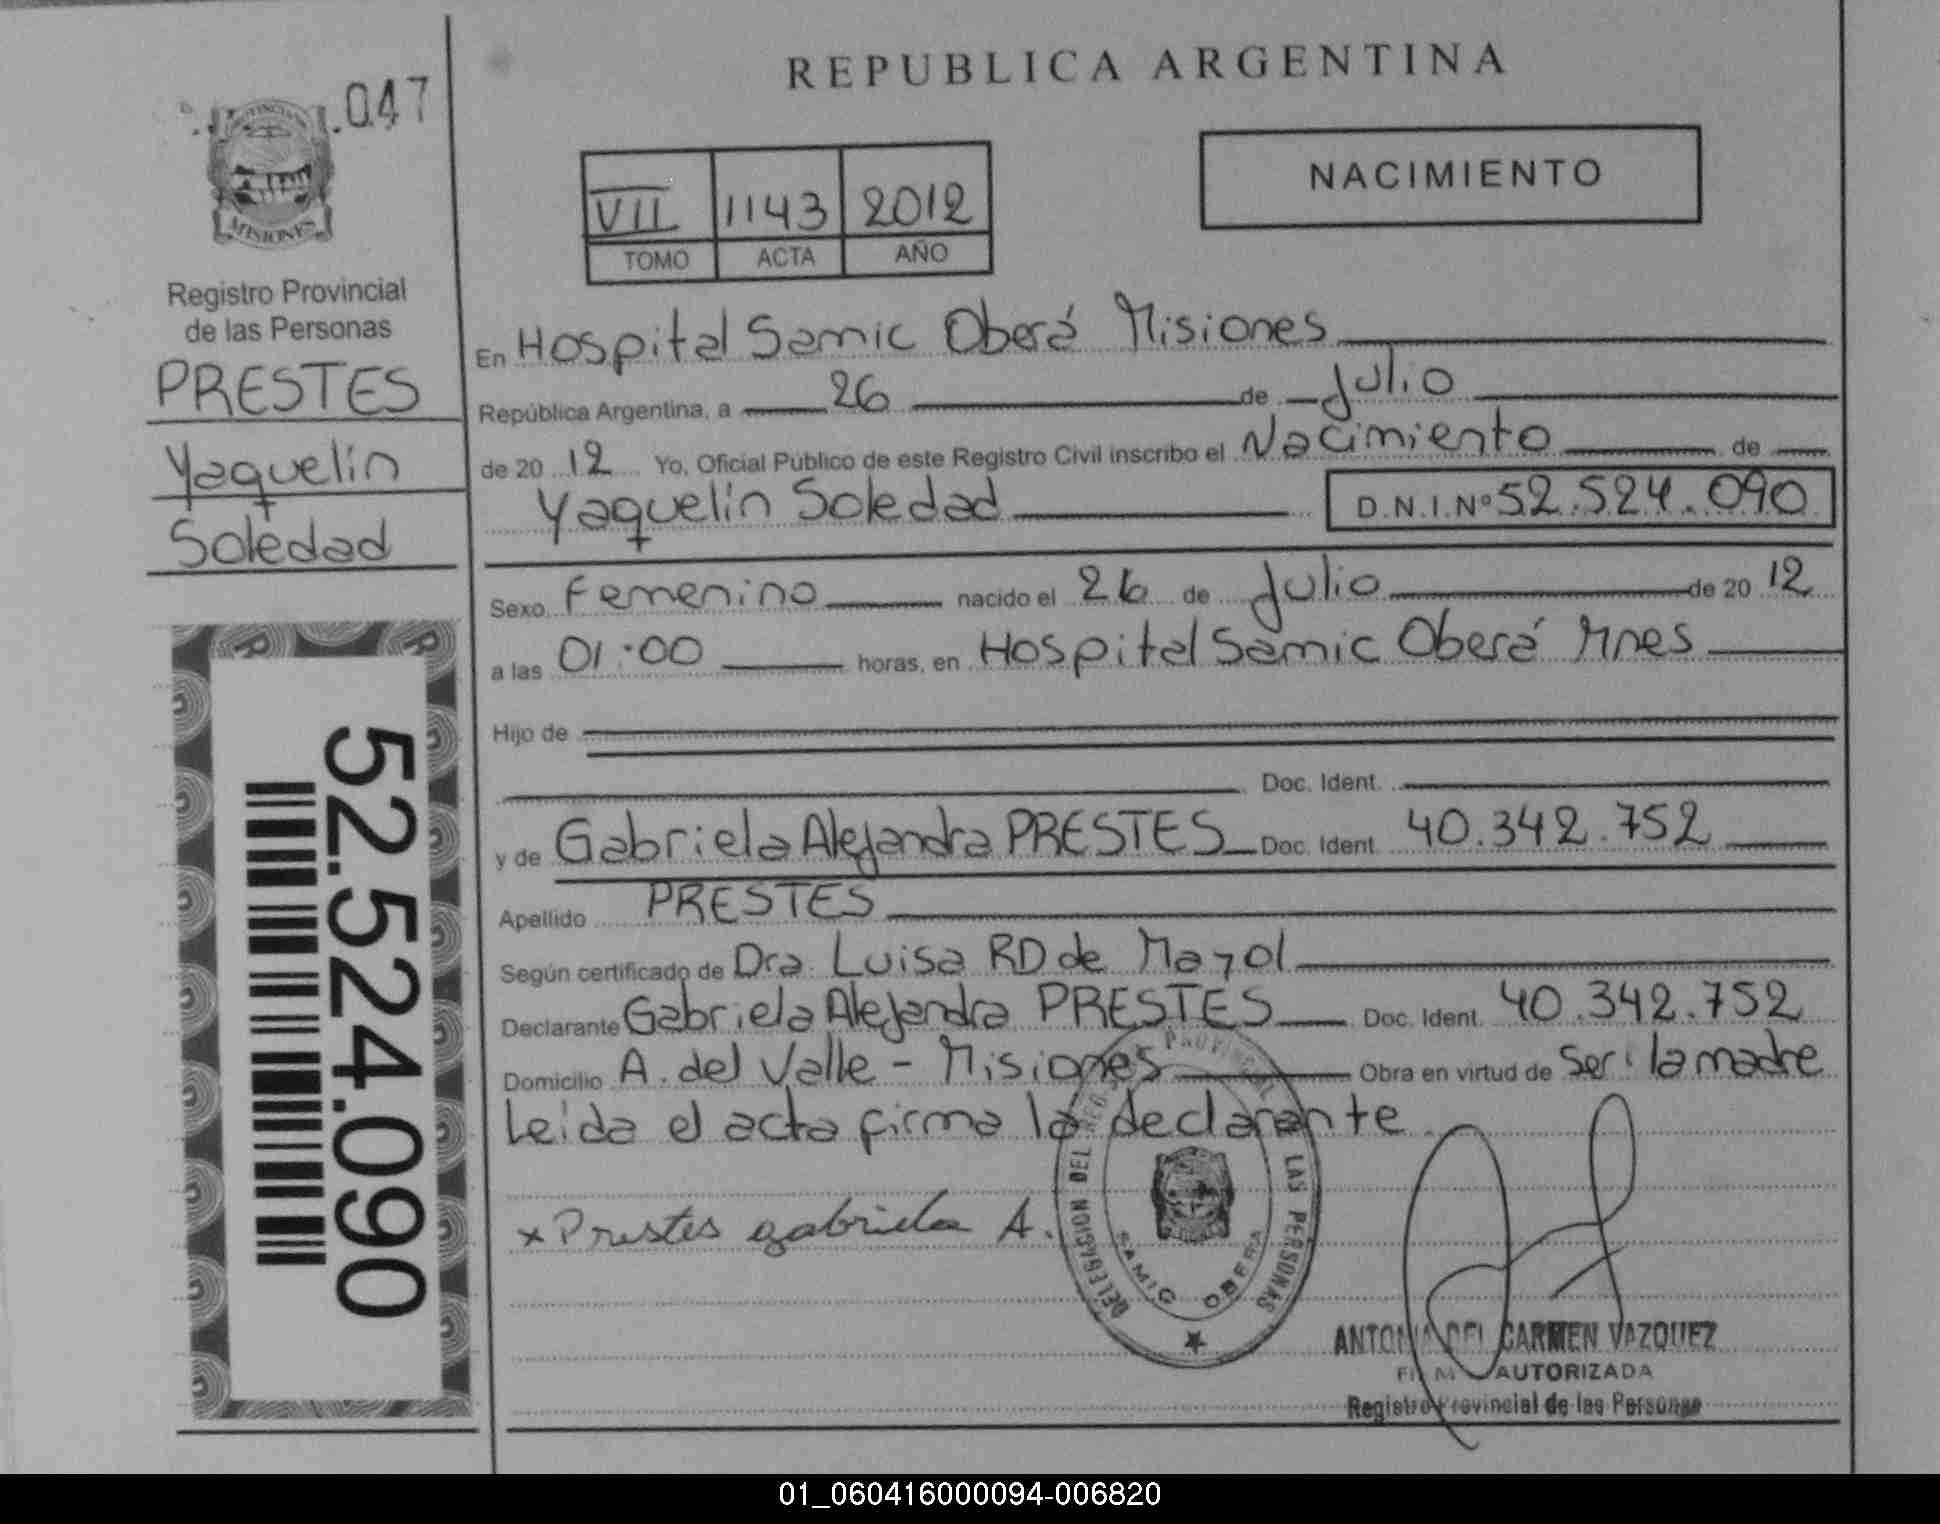 .047
PROVINCIA DE
MISIONES
Registro Provincial
de las Personas
PRESTES
Yaquelin
Soledad
52.524.090
REPUBLICA ARGENTINA
VII 1143 2012
TOMO ACTA AÑO
NACIMIENTO
En Hospital Samic Oberá Misiones
República Argentina, a 26 de Julio
de 20 12 Yo, Oficial Público de este Registro Civil inscribo el Nacimiento de
Yaquelin Soledad D.N.I.Nº 52.524.090
Sexo Femenino nacido el 26 de Julio de 20 12
a las 01:00 horas, en Hospital Samic Oberá Mnes
Hijo de
Doc. Ident.
y de Gabriela Alejandra PRESTES Doc. Ident. 40.342.752
Apellido PRESTES
Según certificado de Dra. Luisa RD de Mayol
Declarante Gabriela Alejandra PRESTES Doc. Ident. 40.342.752
Domicilio A. del Valle - Misiones Obra en virtud de Ser: la madre
Leida el acta firma la declarante.
x Prestes gabriela A.
DELEGACION DEL REG. PROVINCIAL LAS PERSONAS
SAMIC OBERA
ANTONIA DEL CARMEN VAZQUEZ
FIRMA AUTORIZADA
Registro Provincial de las Personas
01_060416000094-006820